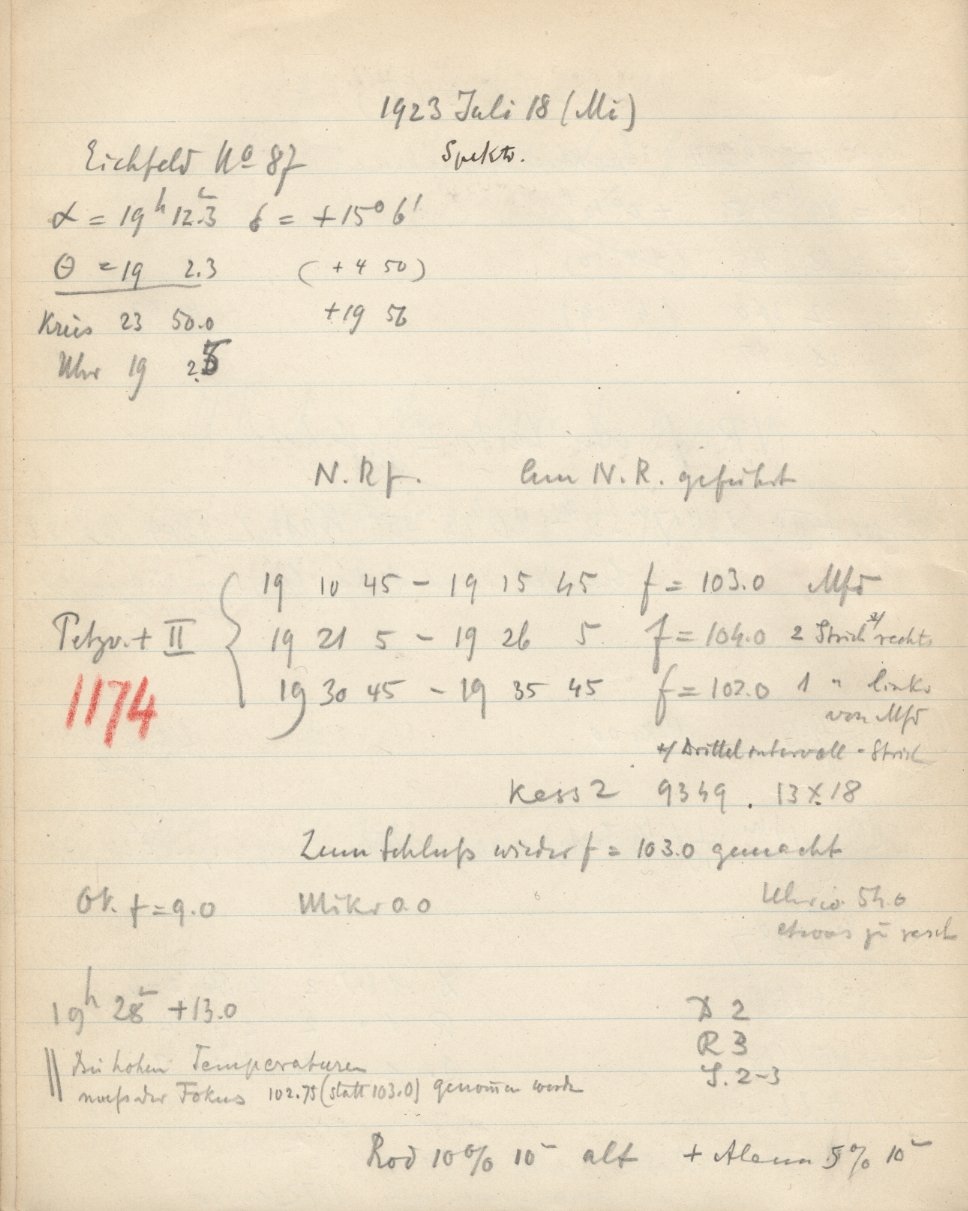 1923 Juli 18 (Mi)
Eichfeld No 87 Spektr.
α = 19h 12.3 δ = +15° 6'
θ = 19 2.3 (+4 50)
Kreis 23 50.0 +19 56
Uhr 19 2.5
N.Rf. Am N.R. geführt
19 10 45 - 19 15 45 f = 103.0 Mfd
Petzv. + II 19 21 5 - 19 26 5 f = 104.0 2 Strich */ rechts
1174 19 30 45 - 19 35 45 f = 102.0 1 " links
von Mfd
*/ Drittelintervall-Strich
Kass 2 9349. 13x18
Zum Schluß wieder f = 103.0 gemacht
Ok. f = 9.0 Mikr 0.0 54.0
etwas zu rasch
19h 28m +13.0 D 2
R 3
Bei hohen Temperaturen S. 2-3
muß der Fokus 102.75 (statt 103.0) genommen werden
Rod 10% 10m alt + Alaun 5% 10m